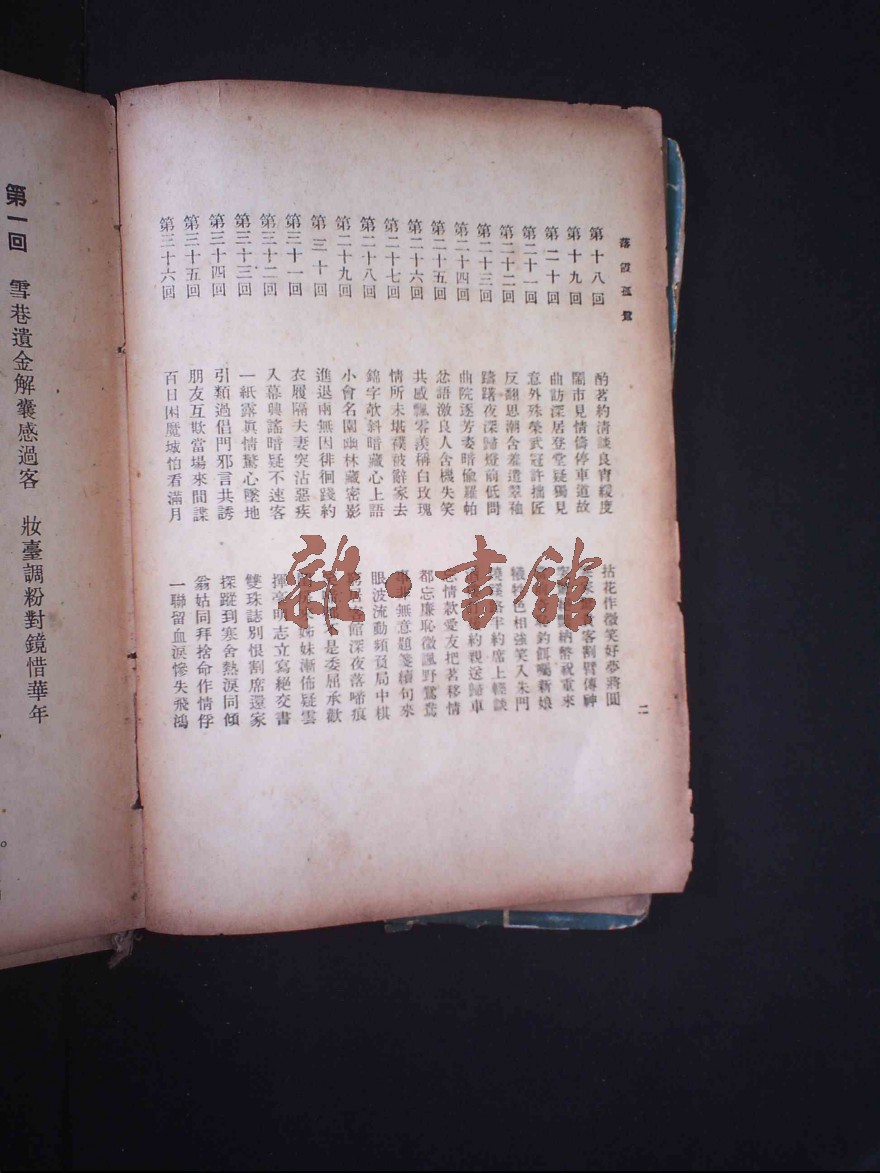 落霞孤鶩
第十八回 酌茗約清談良宵緩度 拈花作微笑好夢將圓
第十九回 鬧市見情儔停車道故 客割臂傳神
第二十回 曲訪深居登堂疑獨見 納幣祝重來
第二十一回 意外殊榮武冠許拙匠 鈎餌囑新娘
第二十二回 反翻思潮含羞遣翠袖 犧牲色相強笑入朱門
第二十三回 躊躇夜深歸燈前低問 半約席上輕談
第二十四回 曲院逐芳姿暗偷羅帕 約親送歸車
第二十五回 忿語激良人含機失笑 忘情款愛友把茗移情
第二十六回 共感飄零羨稱白玫瑰 都忘廉恥微諷野鴛鴦
第二十七回 情所未堪襆被辭家去 事非無意題箋續句來
第二十八回 錦字欹斜暗藏心上語 眼波流動頻負局中棋
第二十九回 小會名園幽林藏密影 館深夜落啼痕
第三十回 進退兩無因徘徊踐約 是委屈承歡
第三十一回 衣履隔夫妻突沾惡疾 姊妹漸佈疑雲
第三十二回 入幕興謠暗疑不速客 揮毫明志立寫絕交書
第三十三回 一紙露真情驚心墜地 雙珠誌別恨割席還家
第三十四回 引類過倡門邪言共誘 探蹤到寒舍熱淚同傾
第三十五回 朋友互欺當場來間諜 翁姑同拜捨命作情俘
第三十六回 百日困魔城怕看滿月 一聯留血淚慘失飛鴻
二
第一回 雪巷遺金解囊感過客 妝臺調粉對鏡惜華年
雜·書館